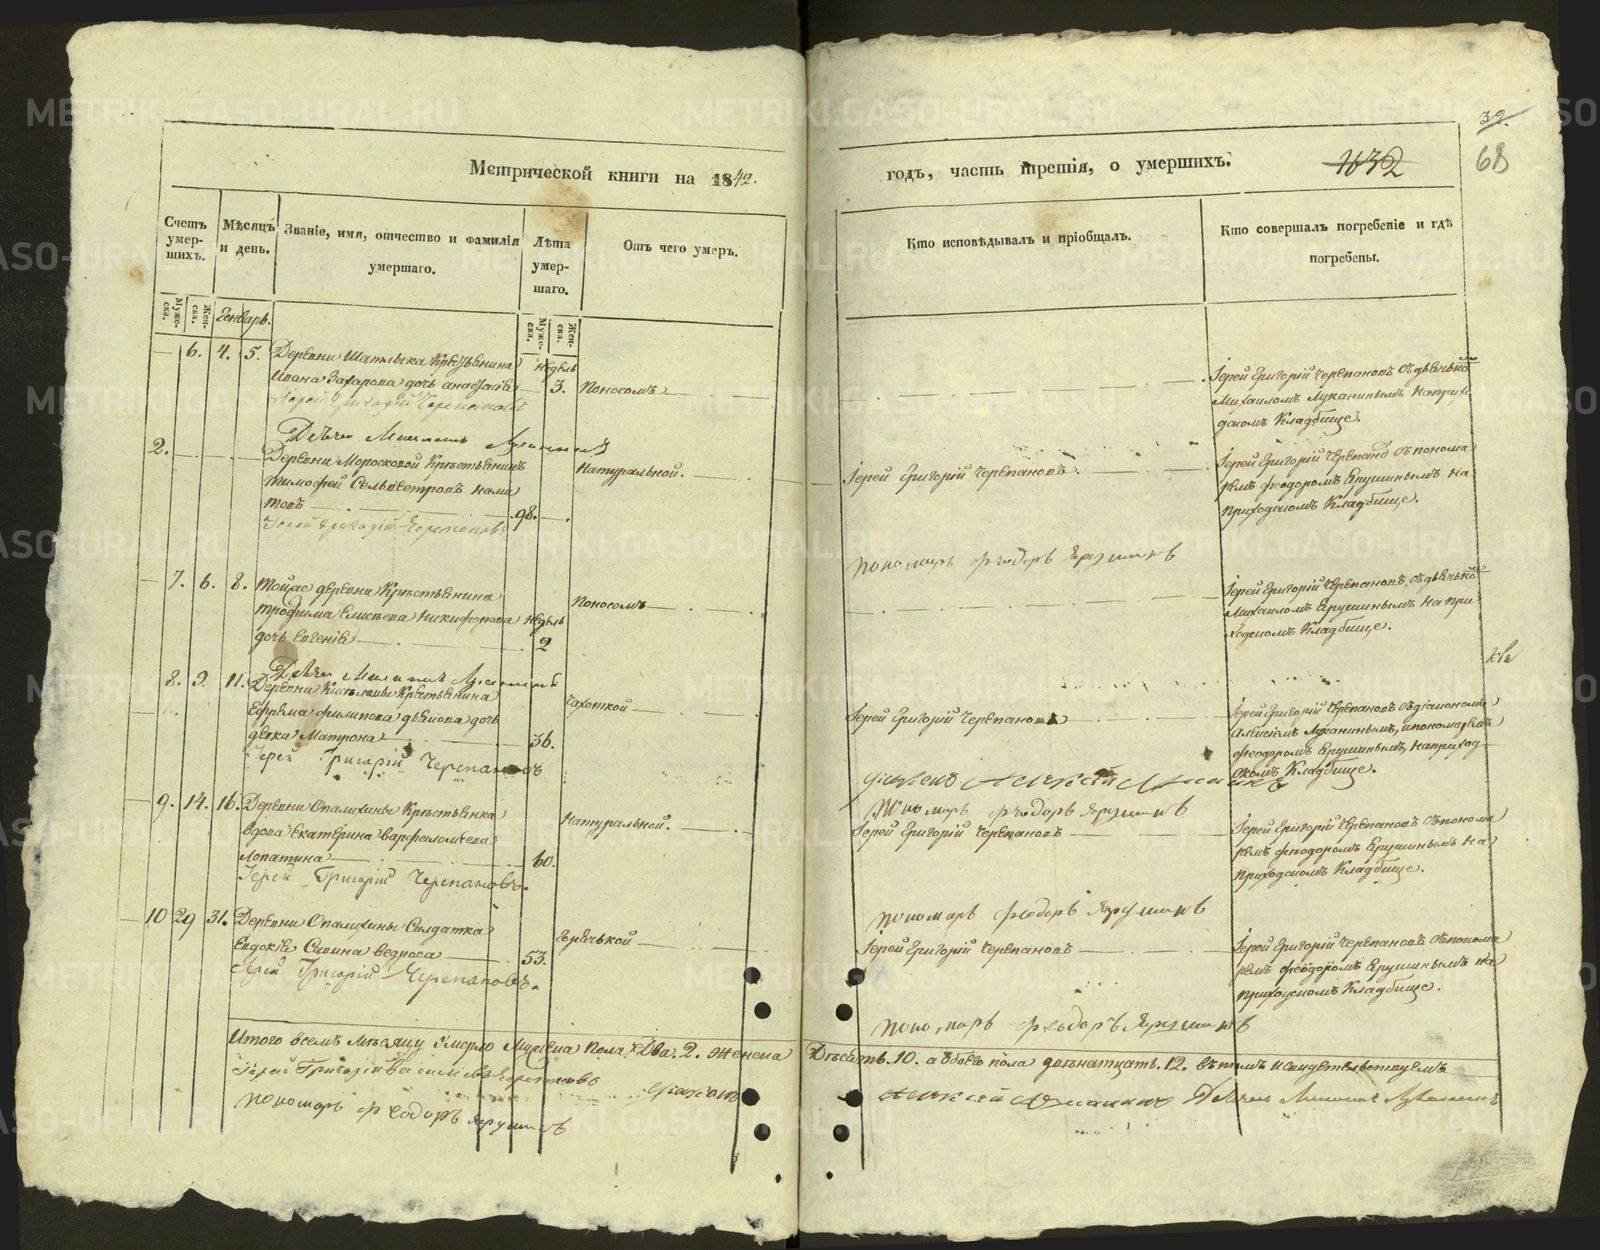 Метрической книги на 1842.
Счетъ умершихъ.
Мѣсяцъ и день.
Званіе, имя, отчество и фамилія умершаго.
Лѣта умершаго.
Отъ чего умеръ.
Мужеска.
Женска.
Генварь.
Мужеска.
Женска.
6. 4. 5. Деревни Крестьянина недѣль
Ивана Захарова дочь Анастасія 3. Поносомъ
Іерей Григорій Черепановъ
Дьячекъ Михаилъ
2. Деревни Моросковой Крестьянинъ Натуральной.
Тимофей Сельвестровъ
98.
Іерей Григорій Черепановъ
7. 6. 8. Тойже деревни Крестьянина Поносомъ
Трофима Елисѣева Никифорова недѣль
дочь Евгенія 2
Дьячекъ Михаилъ
8. 9. 11. Деревни Крестьянина Чахоткой
Ефрема Филипова дочь
дѣвка Матрона 36.
Іерей Григорій Черепановъ
9. 14. 16. Деревни Опалихины Крестьянка Натуральной.
вдова Екатерина Варфоломѣева
Лопатина 60.
Іерей Григорій Черепановъ.
10 29 31. Деревни Опалихины Солдатка Горячькой
Евдокія Савина 53.
Іерей Григорій Черепановъ.
Итого всемъ мѣсяцу умерло Мужеска пола Два. 2. женска
Іерей Григорій Черепановъ
пономарь Феодоръ Ярушинъ
32.
68
годъ, часть третія, о умершихъ.
1832
Кто исповѣдывалъ и пріобщалъ.
Кто совершалъ погребеніе и гдѣ погребены.
Іерей Григорій Черепановъ съ дьячькомъ
Михаиломъ Луканинымъ на приходскомъ Кладбище.
Іерей Григорій Черепановъ.
Іерей Григорій Черепановъ съ пономаремъ Феодоромъ Ерушинымъ на
приходскомъ Кладбище.
пономарь Феодоръ Ярушинъ
Іерей Григорій Черепановъ, съ дьячькомъ
Михаиломъ Ерушинымъ на приходскомъ Кладбище.
Іерей Григорій Черепановъ
Іерей Григорій Черепановъ съ діакономъ
Алексіемъ Луканинымъ, и пономаремъ
Феодоромъ Ерушинымъ, на приходскомъ Кладбище.
пономарь Феодоръ Ярушинъ
Іерей Григорій Черепановъ
Іерей Григорій Черепановъ съ пономаремъ Феодоромъ Ерушинымъ на
приходскомъ Кладбище.
пономарь Феодоръ Ярушинъ
Іерей Григорій Черепановъ
Іерей Григорій Черепановъ съ пономаремъ Феодоромъ Ерушинымъ на
приходскомъ Кладбище.
пономарь Феодоръ Ярушинъ
Десять. 10. а обоего пола двѣнатцать. 12. въ томъ и свидетельствуемъ
METRIKI.GASO-URAL.RU